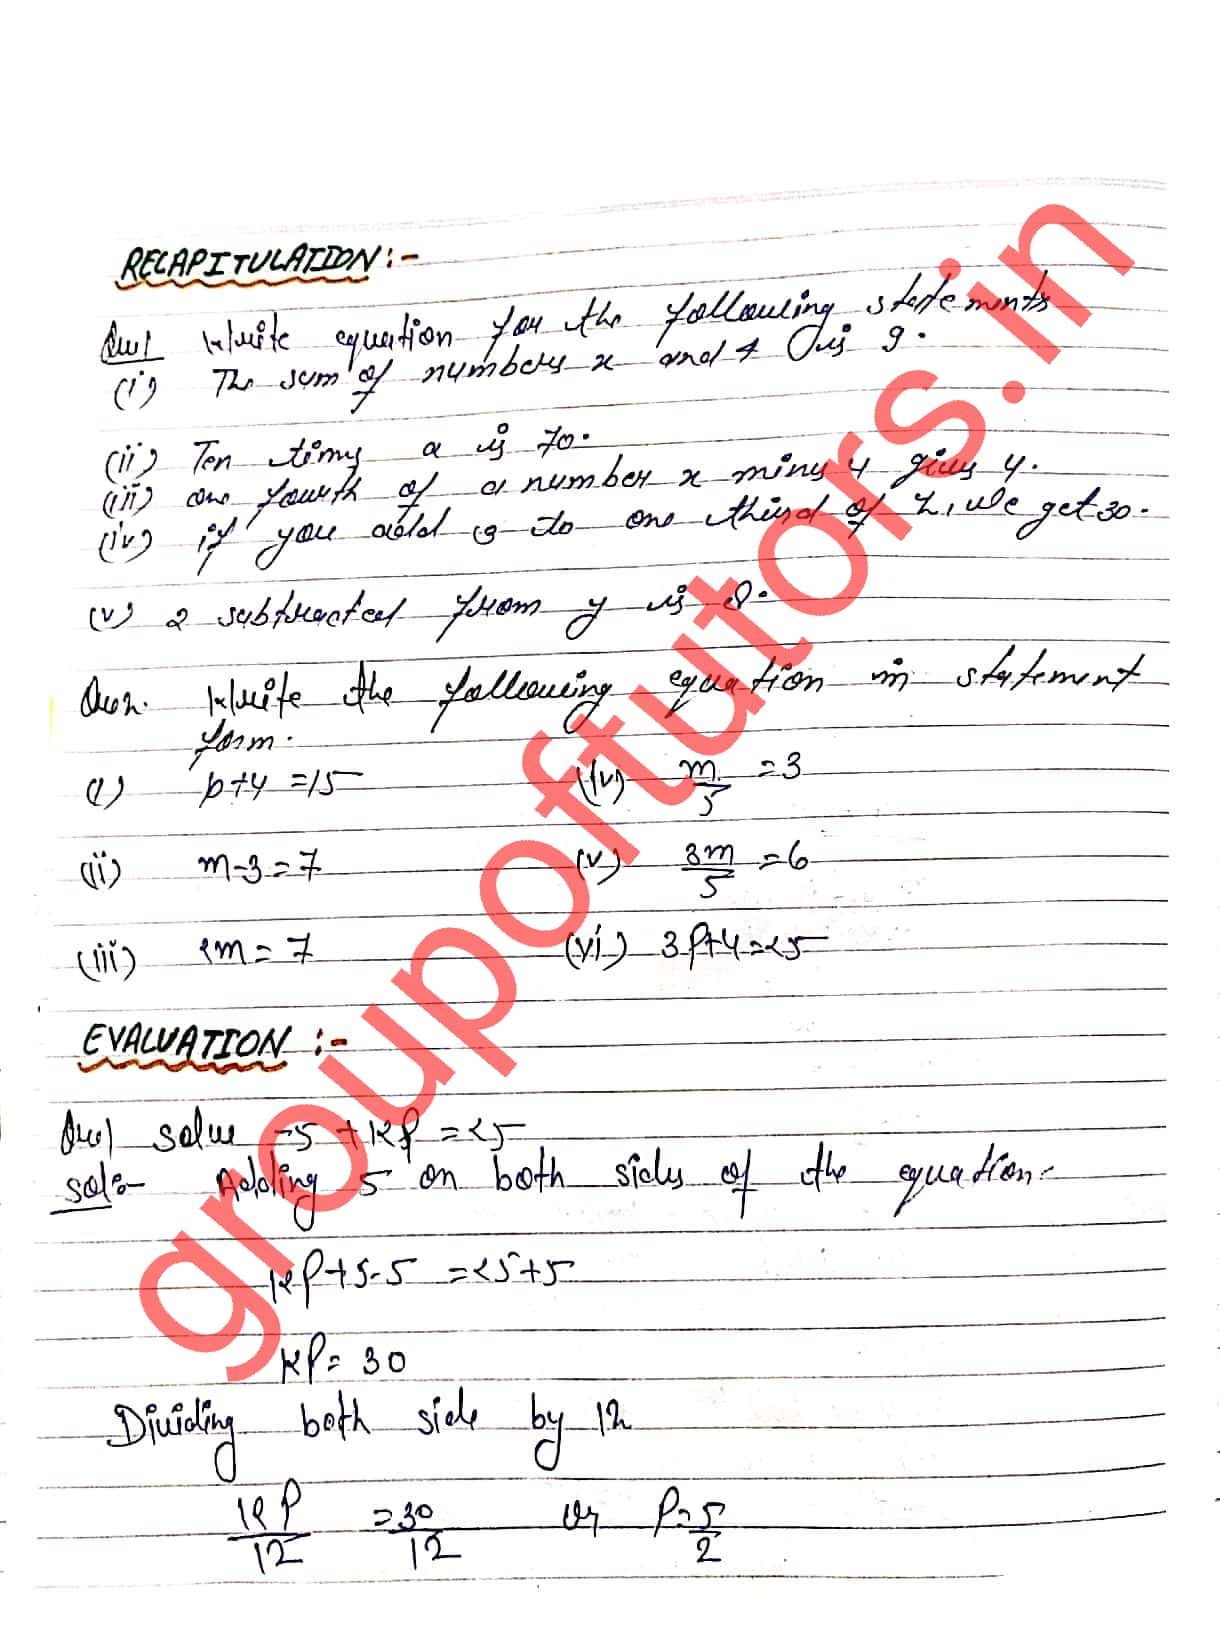 RECAPITULATION:-
Que1 Write equation for the following statements
(i) The sum of numbers x and 4 is 9.
(ii) Ten times a is 70.
(iii) one fourth of a number x minus 4 gives 4.
(iv) if you add 3 to one third of z, we get 30.
(v) 2 subtracted from y is 8.
Que2. Write the following equation in statement
form.
(i) p+4=15 (iv) m/5 =3
(ii) m-3=7 (v) 3m/5 =6
(iii) 2m=7 (vi) 3P+4=25
EVALUATION :-
Que1 solve -5+12P=25
sol:- Adding 5 on both sides of the equation:-
12P+5-5 =25+5
12P=30
Dividing both side by 12
12P/12 =30/12 Or P=5/2
groupoftutors.in